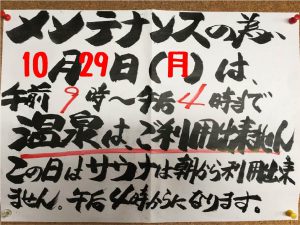 メンテナンスの為、
10月29日（月）は、
午前9時～午后4時まで
温泉は、ご利用出来ません
この日はサウナは朝から利用出来
ません。午后4時からになります。